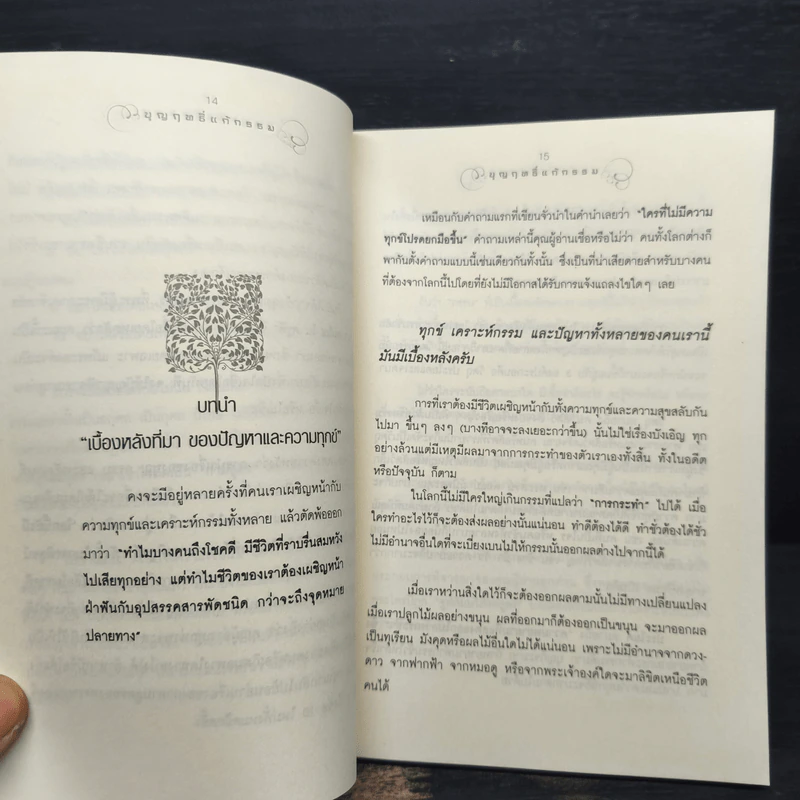 14
บุญฤทธิ์แก้กรรม
บทนำ
"เบื้องหลังที่มา ของปัญหาและความทุกข์"
คงจะมีอยู่หลายครั้งที่คนเราเผชิญหน้ากับ
ความทุกข์และเคราะห์กรรมทั้งหลาย แล้วตัดพ้อออก
มาว่า "ทำไมบางคนถึงโชคดี มีชีวิตที่ราบรื่นสมหวัง
ไปเสียทุกอย่าง แต่ทำไมชีวิตของเราต้องเผชิญหน้า
ฝ่าฟันกับอุปสรรคสารพัดชนิด กว่าจะถึงจุดหมาย
ปลายทาง"
15
บุญฤทธิ์แก้กรรม
เหมือนกับคำถามแรกที่เขียนจั่วนำในคำนำเลยว่า "ใครที่ไม่มีความ
ทุกข์โปรดยกมือขึ้น" คำถามเหล่านี้คุณผู้อ่านเชื่อหรือไม่ว่า คนทั้งโลกต่างก็
พากันตั้งคำถามแบบนี้เช่นเดียวกันทั้งนั้น ซึ่งเป็นที่น่าเสียดายสำหรับบางคน
ที่ต้องจากโลกนี้ไปโดยที่ยังไม่มีโอกาสได้รับการแจ้งแถลงไขใดๆ เลย
ทุกข์ เคราะห์กรรม และปัญหาทั้งหลายของคนเรานี้
มันมีเบื้องหลังครับ
การที่เราต้องมีชีวิตเผชิญหน้ากับทั้งความทุกข์และความสุขสลับกัน
ไปมา ขึ้นๆ ลงๆ (บางทีอาจจะลงเยอะกว่าขึ้น) นั้นไม่ใช่เรื่องบังเอิญ ทุก
อย่างล้วนแต่มีเหตุมีผลมาจากการกระทำของตัวเราเองทั้งสิ้น ทั้งในอดีต
หรือปัจจุบัน ก็ตาม
ในโลกนี้ไม่มีใครใหญ่เกินกรรมที่แปลว่า "การกระทำ" ไปได้ เมื่อ
ใครทำอะไรไว้ก็จะต้องส่งผลอย่างนั้นแน่นอน ทำดีต้องได้ดี ทำชั่วต้องได้ชั่ว
ไม่มีอำนาจอื่นใดที่จะเบี่ยงเบนไม่ให้กรรมนั้นออกผลต่างไปจากนี้ได้
เมื่อเราหว่านสิ่งใดไว้ก็จะต้องออกผลตามนั้นไม่มีทางเปลี่ยนแปลง
เมื่อเราปลูกไม้ผลอย่างขนุน ผลที่ออกมาก็ต้องออกเป็นขนุน จะมาออกผล
เป็นทุเรียน มังคุดหรือผลไม้อื่นใดไม่ได้แน่นอน เพราะไม่มีอำนาจจากดวง-
ดาว จากฟากฟ้า จากหมอดู หรือจากพระเจ้าองค์ใดจะมาลิขิตเหนือชีวิต
คนได้